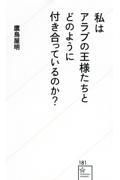 私は
アラブの王様たちと
どのように
付き合っているのか?
鷹鳥屋明
181